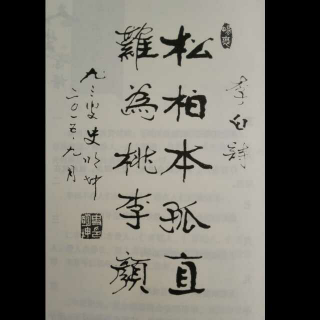 李白詩
松柏本孤直
難為桃李顏
九三叟史
二〇一五.九月